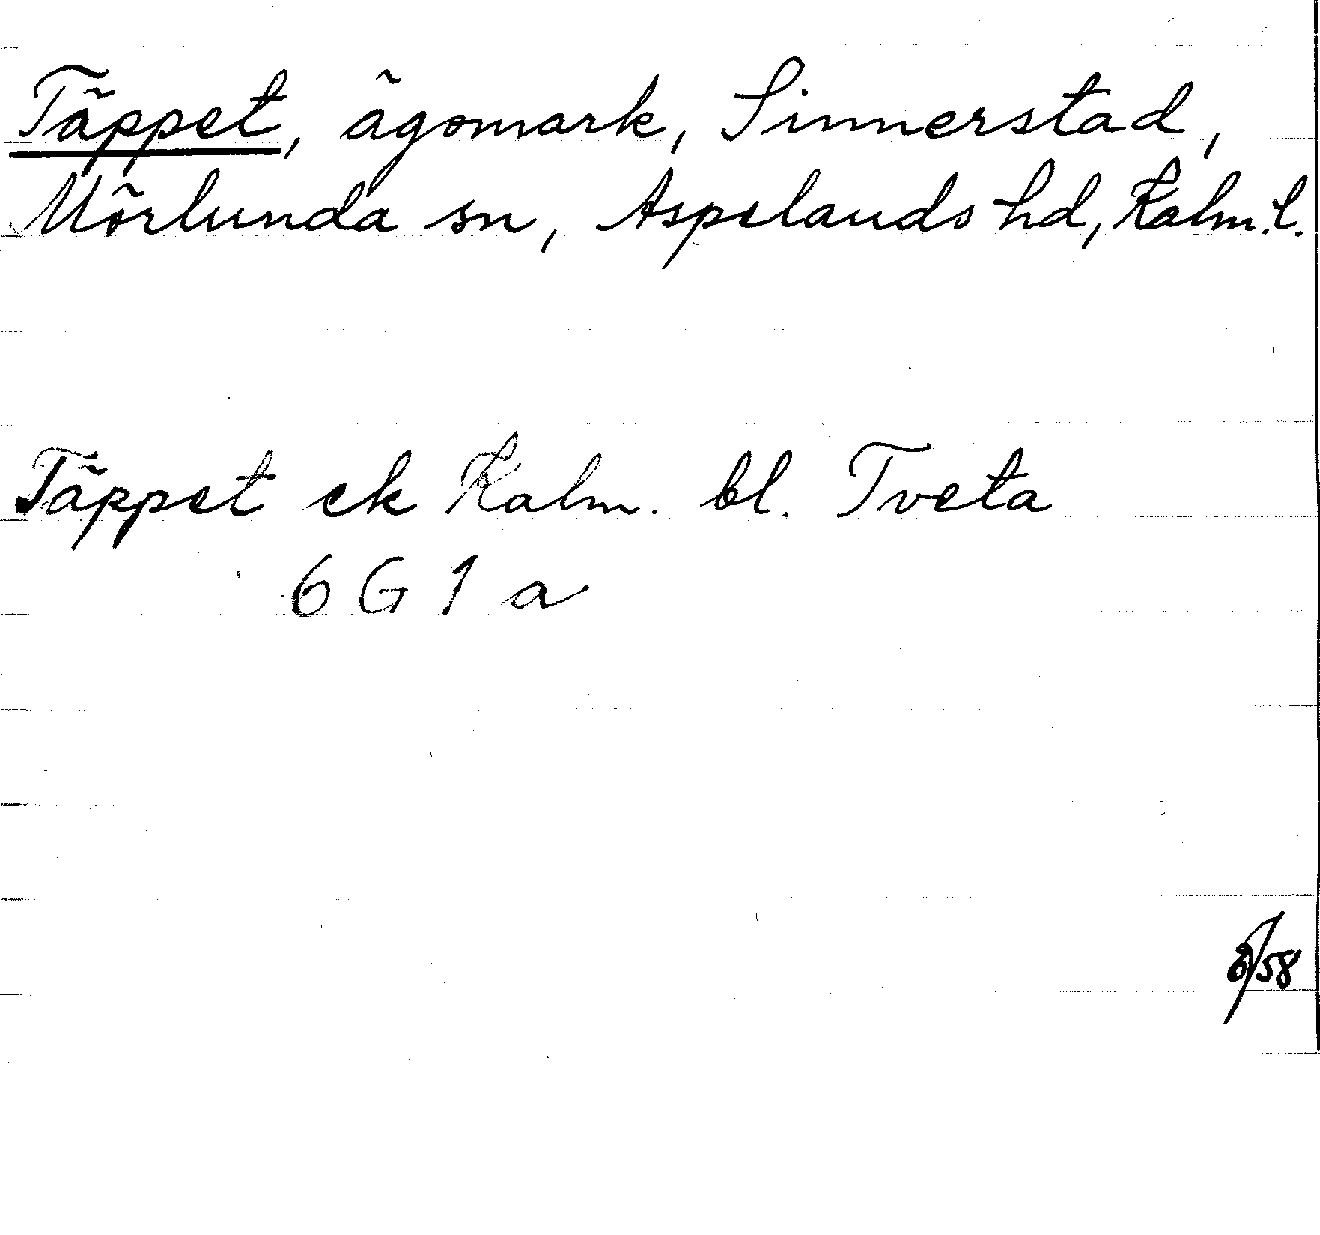 Täppet, ägomark, Sinnerstad,
Mörlunda sn, Aspelands hd, Kalm. l.
Täppet ek Kalm. bl. Tveta
6 G 1 a
/58